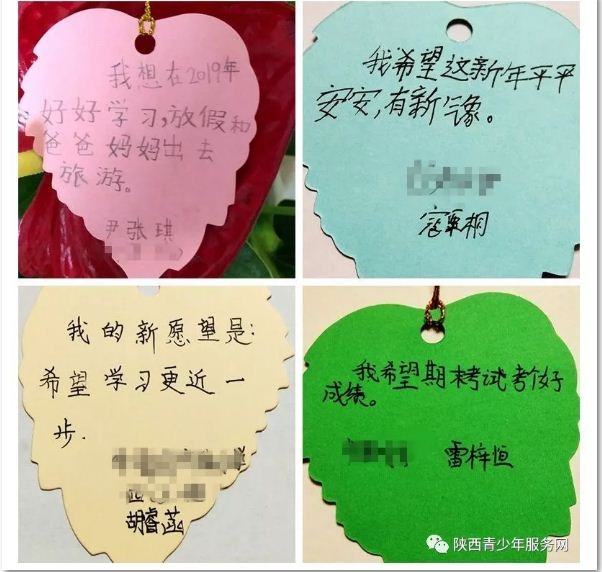 我想在2019年
好好学习,放假和
爸爸妈妈出去
旅游。
尹张琪
我希望这新年平平
安安,有新气像。
寇粟桐
我的新愿望是:
希望学习更近一
步.
胡睿菡
我希望期末考试考个好
成绩。
雷梓恒
陕西青少年服务网